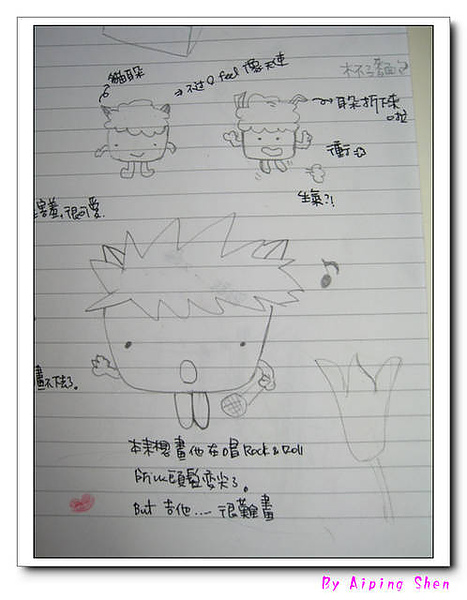 貓耳
不过 Q feel 像天使
杯子麵包
耳朵折下來
啦
衝
生氣?!
害羞,很可愛.
畫不下去了。
本來想畫他在唱 Rock & Roll
所以頭髮变尖了。
But 吉他.... 很難畫
By Aiping Shen